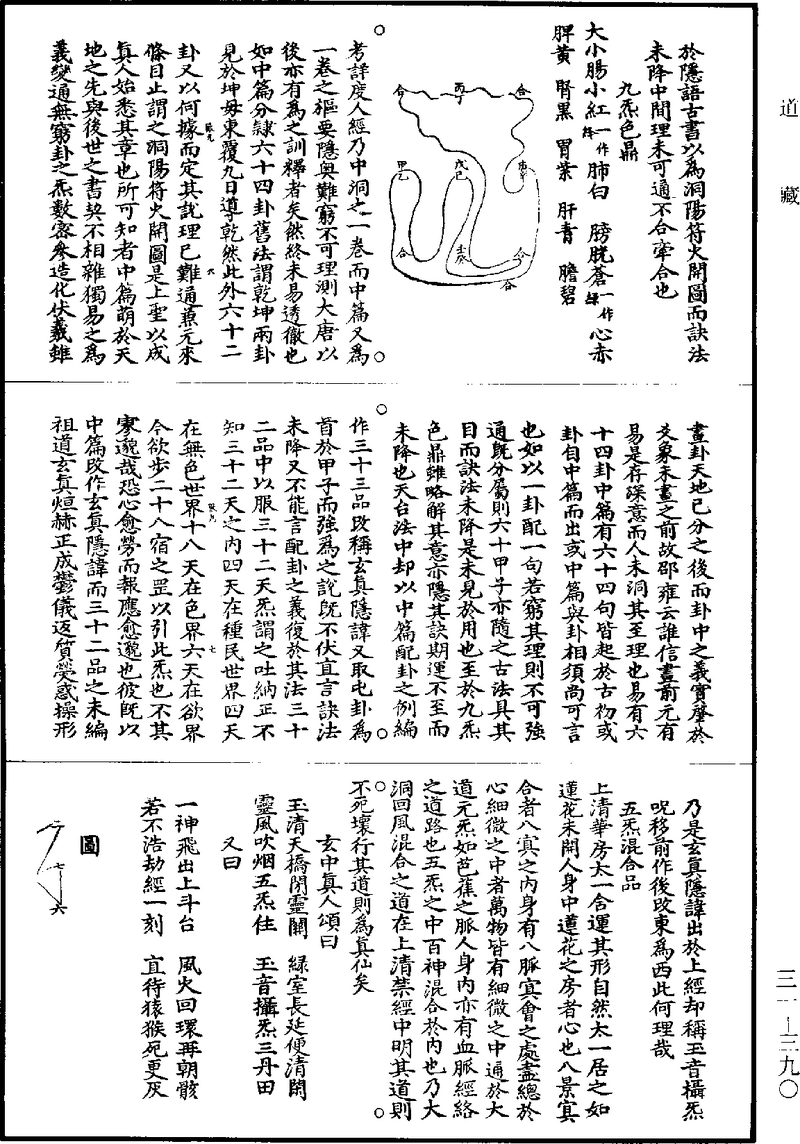 道藏
三一—三九〇
於隱語古書以為洞陽符火開圖而訣法
未降中間理未可通不合牽合也
九炁色鼎
大小腸小紅一作絳 肺白 膀胱蒼一作綠 心赤
脾黃 腎黑 胃紫 肝青 膽碧
合 丙丁 合
甲乙 戊己 庚辛
合 壬癸 合 合
考詳度人經乃中洞之一卷而中篇又為
一卷之樞要隱奧難窮不可理測大唐以
後亦有為之訓釋者矣然終未易透徹也
如中篇分隸六十四卦舊法謂乾坤兩卦
見於坤母東覆九日導乾然此外六十二
卦又以何據而定其說理已難通兼元來
條目止謂之洞陽符火開圖是上聖以成
真人始悉其章也所可知者中篇萌於天
地之先與後世之書契不相雜獨易之為
義變通無窮卦之炁數密參造化伏羲雖
畫卦天地已分之後而卦中之義實肇於
爻象未畫之前故邵雍云誰信畫前元有
易是存深意而人未洞其至理也易有六
十四卦中篇有六十四句皆起於古初或
卦自中篇而出或中篇與卦相須尚可言
也如以一卦配一句若窮其理則不可強
通既分屬則六十甲子亦隨之古法具其
目而訣法未降是未見於用也至於九炁
色鼎雖略解其意亦隱其訣期運不至而
未降也天台法中却以中篇配卦之例編
作三十三品改稱玄真隱諱又取屯卦為
首於甲子而強為之說既不伏宜言訣法
未降又不能言配卦之義復於其法三十
二品中以服三十二天炁謂之吐納正不
知三十二天之內四天在種民世界四天
在無色世界十八天在色界六天在欲界
今欲步二十八宿之罡以引此炁也不其
寥邈哉恐心愈勞而報應愈邈也彼既以
中篇改作玄真隱諱而三十二品之末編
祖道玄真烜赫正成鬱儀返質熒惑操形
乃是玄真隱諱出於上經却稱玉音攝炁
呪移前作後改東為西此何理哉
五炁混合品
上清華房太一合運其形自然太一居之如
蓮花未開人身中蓮花之房者心也八景冥
合者八真之內身有八脈冥會之處盡總於
心細微之中者萬物皆有細微之中通於大
道元炁如芭蕉之脈人身內亦有血脈經絡
之道路也五炁之中百神混合於內也乃大
洞回風混合之道在上清禁經中明其道則
不死壞行其道則為真仙矣
玄中真人頌曰
玉清天橋閉靈關 綠室長延便清閑
靈風吹烟五炁住 玉音攝炁三丹田
又曰
一神飛出上斗台 風火回環再朝骸
若不浩劫經一刻 直待猿猴死更灰
圖
二 七 六